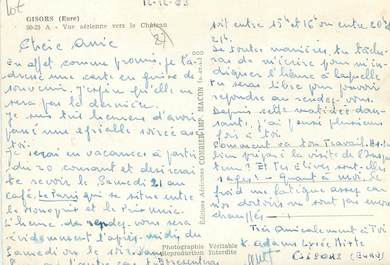 lot
12-12-63
GISORS (Eure)
90-28 A - Vue aérienne vers le Château
Chère Amie
En effet comme promis, je t'a-
dresse une carte en guise de
souvenir. J'espère qu'elle ne
sera pas la dernière.
Je suis très heureux d'avoir
passé une si belle soirée avec
toi.
Je serai en vacances à partir
du 20 courant et désirerai
te revoir le Samedi 21 au
café Le Paris qui se situe entre
le Monoprix et le
L'heure de rendez-vous sera
évidemment l'après-midi du
Samedi ou le soir dans
Éditions Aériennes COMBIER IMP. MACON (S.-et-L.)
Photographie Véritable
Reproduction Interdite
soit entre 15h et 16h ou entre 20h
De toutes manières, tu tâche-
ras de m'écrire pour m'in-
diquer l'heure à laquelle
tu seras libre pour pouvoir
répondre au rendez-vous.
Depuis cette matinée dan-
sante, j'ai pensé plusieurs
fois à toi.
Comment va ton Travail.
bien préparé à la visite de l'Inspec-
teur ? Et tes élèves sont-elles
sages ? Quant à moi, le
froid me fatigue assez car
nos dortoirs ne sont pas encore
chauffés
Très Amicalement à Toi
X. Adams Lycée Mixte
GISORS (Eure)